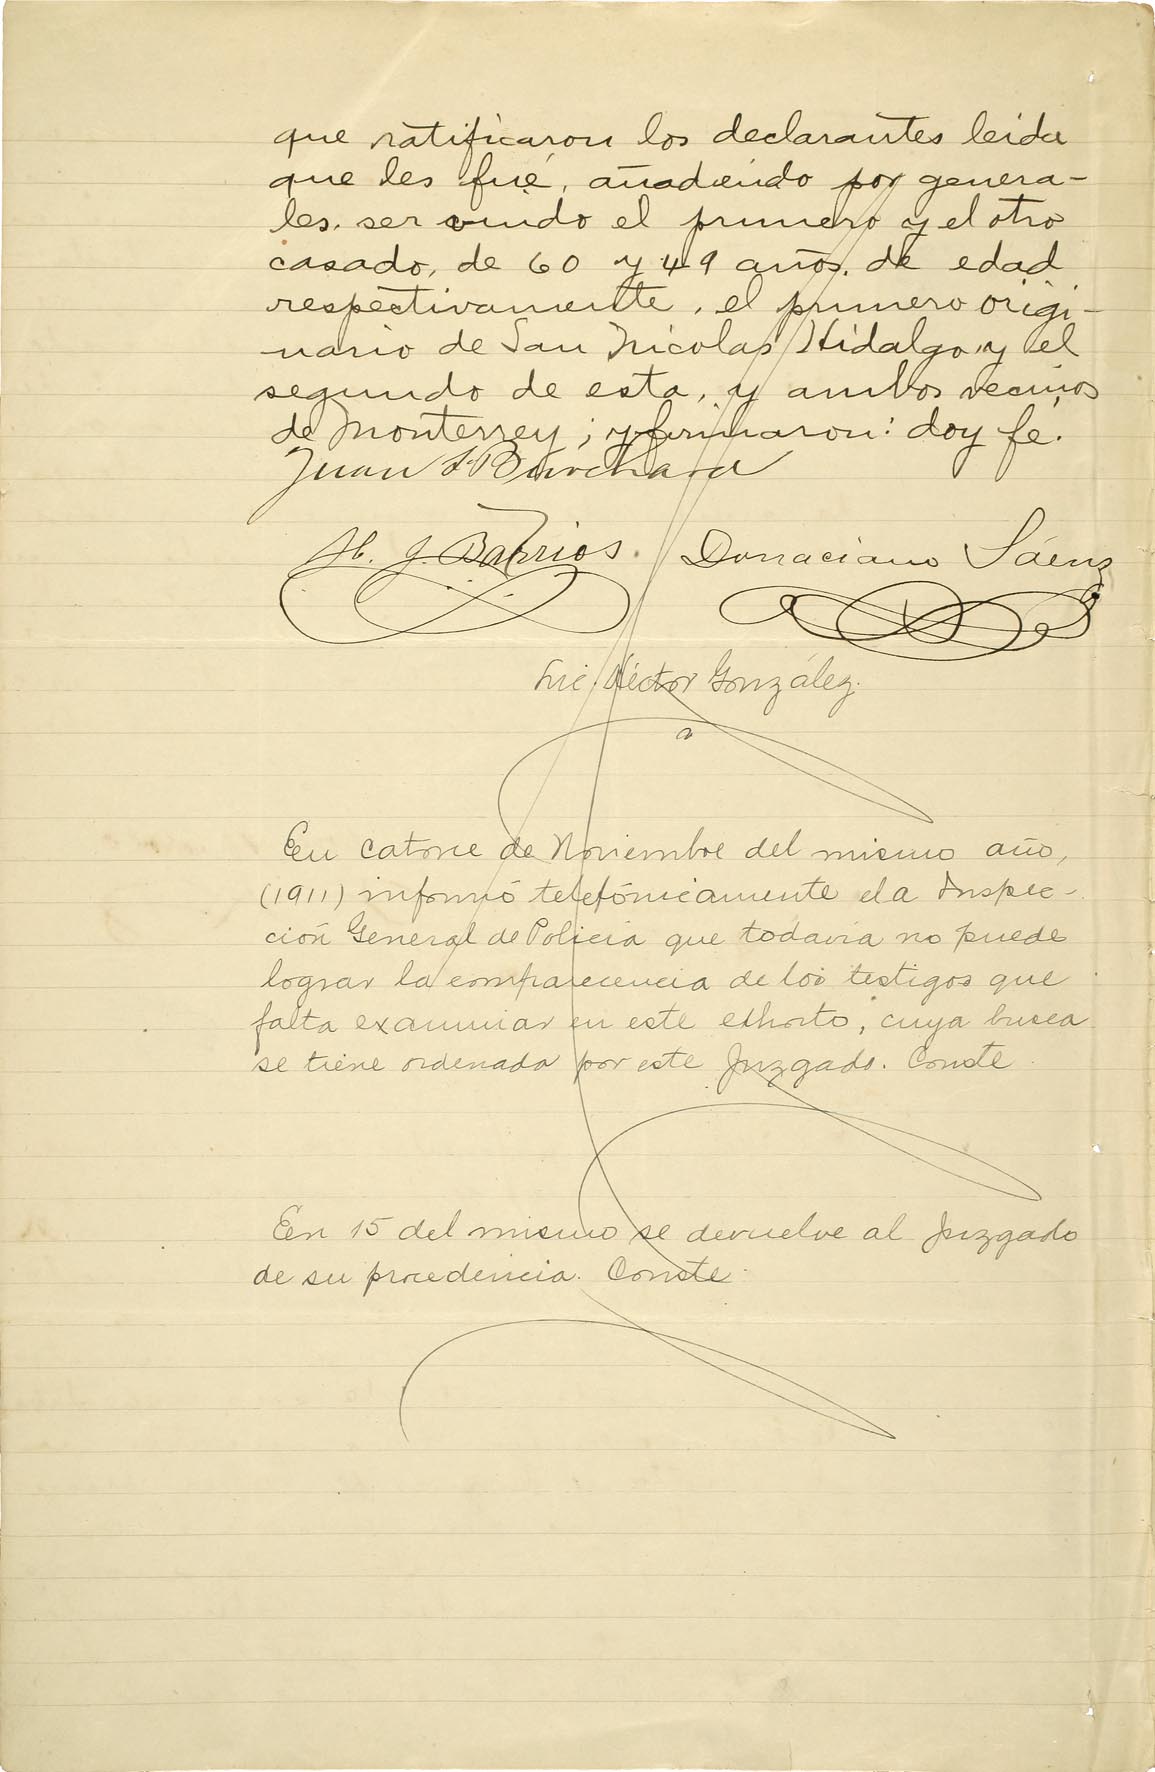 que ratificaron los declarantes leida
que les fué, añadiendo por genera-
les. ser viudo el primero y el otro
casado, de 60 y 49 años. de edad
respectivamente, el primero origi-
nario de San Nicolas Hidalgo y el
segundo de esta, y ambos vecinos
de Monterrey; y firmaron: doy fé.
Juan F. Burchard
H. J. Barrios. Donaciano Sáenz
Lic. Héctor González.
En catorce de Noviembre del mismo año,
(1911) informó telefónicamente el a Inspec-
ción General de Policía que todavía no puede
lograr la comparecencia de los testigos que
falta examinar en este exhorto, cuya busca
se tiene ordenada por este Juzgado. Conste
En 15 del mismo se devuelve al Juzgado
de su procedencia. Conste.